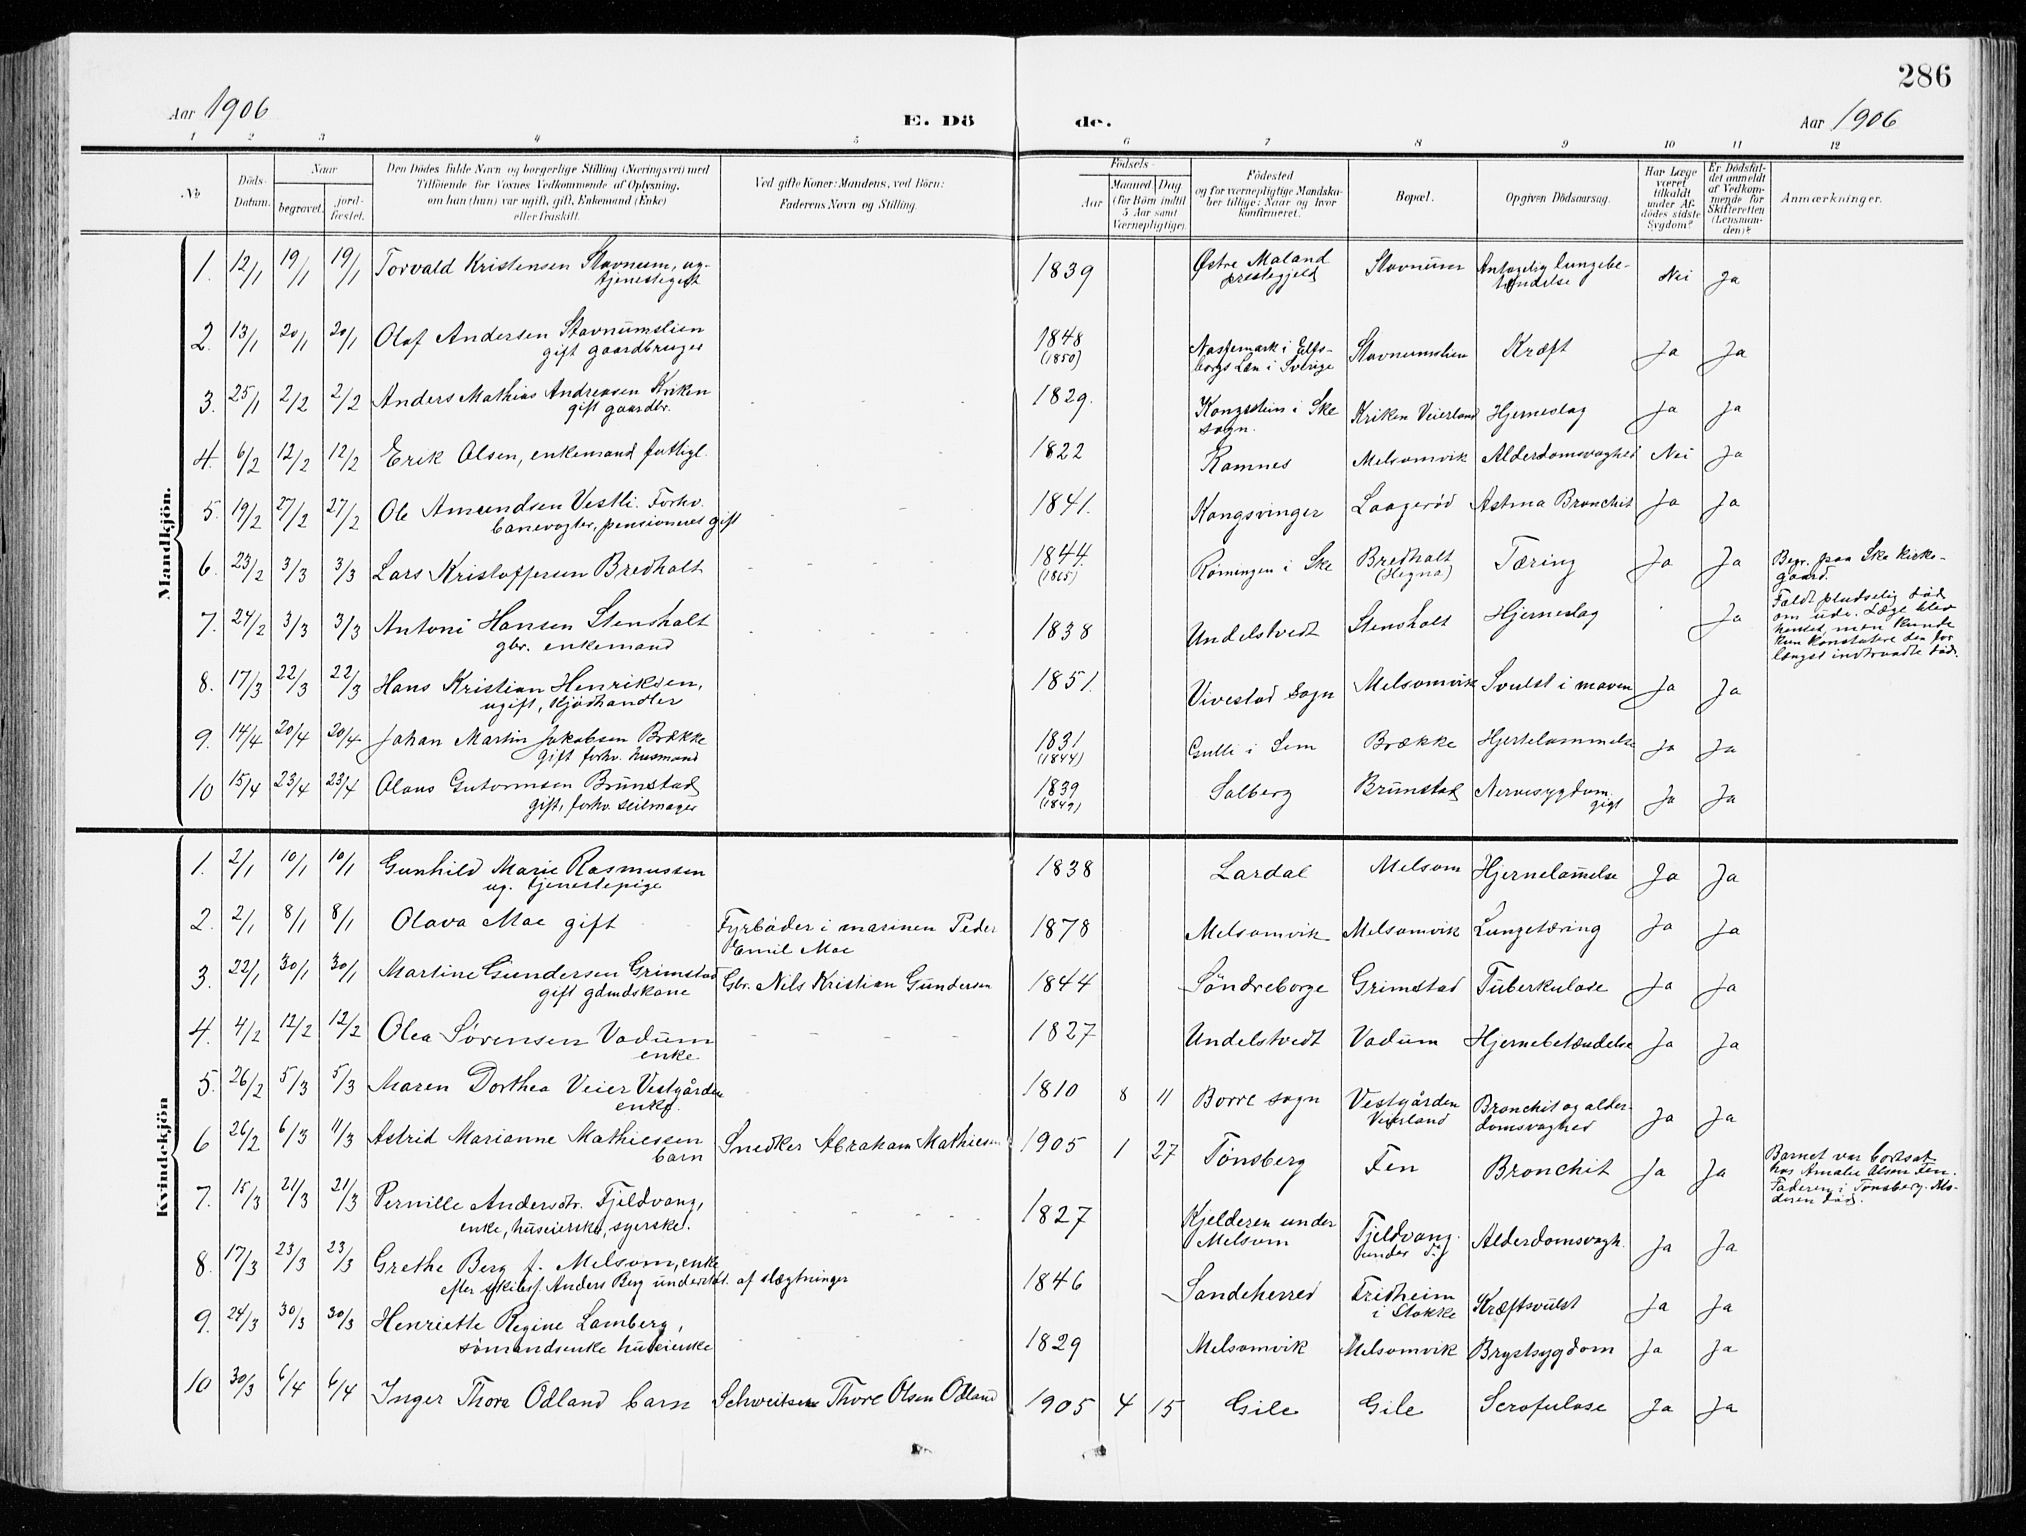 286
Aar 1906 E. Dö de. Aar 1906
1 2 3 4 5 6 7 8 9 10 11 12
No
Döds-
Datum.
Naar
begravet.
jord-
fæstet.
Den Dödes fulde Navn og borgerlige Stilling (Næringsvei) med
Tilföiende for Voxnes Vedkommende af Oplysning,
om han (hun) var ugift, gift, Enkemand (Enke)
eller fraskilt.
Ved gifte Koner: Mandens, ved Börn:
Faderens Navn og Stilling.
Födsels-
Aar
Maaned Dag
(for Börn indtil
5 Aar samt
Værnepligtige).
Födested
og for værnepligtige Mandska-
ber tillige: Naar og hvor
konfirmeret.
Bopæl.
Opgiven Dödsaarsag.
Har Læge
været
tilkaldt
under Af-
dödes sidste
Sygdom?
Er Dödsfal-
det anmeldt
af Vedkom-
mende for
Skifteretten
(Lensman-
den)?
Anmærkninger.
Mandkjön.
1. 12/1 19/1 19/1 Torvald Kristensen Stavnum, ug. 1839 Østre Moland Stavnum Antagelig lungebe- Nei Ja
tjenestegut prestegjeld tændelse
2. 13/1 20/1 20/1 Olaf Andersen Stavnumslien 1848 Stavnumslien Kræft Ja Ja
gift gaardbruger (1850) borgs Len i Sverige
3. 25/1 2/2 2/2 Anders Mathias Andreasen Kriken 1829. Kongsstein i Ske Kriken Veierland Hjerneslag Ja Ja
gift gaardbr. sogn.
4. 6/2 12/2 12/2 Erik Olsen, enkemand fattigl. 1822 Ramnes Melsomvik Alderdomsvaghed Nei Ja
5. 19/2 27/2 27/2 Ole Amundsen Vestli. Forhv. 1841. Kongsvinger Laagerød Astma Bronchit Ja Ja
banevogter, pensioneret gift
6. 23/2 3/3 3/3 Lars Kristoffersen Bredholt 1844. Rømingen i Ske Bredholt Tæring Ja Ja Begr. paa Ske kirke-
(1865) (Hegna) gaard.
7. 24/2 3/3 3/3 Antoni Hansen Stensholt 1838 Undelstvedt Stensholt Hjerneslag Ja Faldt pludselig død
gbr. enkemand om ude. Læge blev
hentet, men kunde
kun konstatere den for
længst indtraadte død.
8. 17/3 22/3 22/3 Hans Kristian Henriksen, 1851. Vivestad sogn Melsomvik Svulst i maven Ja Ja
ugift, kjødhandler
9. 14/4 20/4 20/4 Johan Martin Jakobsen Brække 1831 Gulli i Sem Brække Hjertelammelse Ja Ja
gift forhv. husmand (1844)
10 15/4 23/4 23/4 Olaus Gutormsen Brunstad 1839 Solberg Brunstad Nervesygdom. Ja Ja
gift, forhv. seilmager (1849) gigt
Kvindekjön
1. 2/1 10/1 10/1 Gunhild Marie Rasmussen 1838 Lardal Melsom Hjernelam̄else Ja Ja
ug. tjenestepige
2. 2/1 8/1 8/1 Olava Moe gift Fyrbøder i marinen Peder 1878 Melsomvik Melsomvik Lungetæring Ja Ja
Emil Moe
3. 22/1 30/1 30/1 Martine Gundersen Grimstad Gbr. Nils Kristian Gundersen 1844 Søndreborge Grimstad Tuberkulose Ja Ja
gift gdmdskone
4. 4/2 12/2 12/2 Olea Sørensen Vadum 1827 Undelstvedt Vadum Hjernebetændelse Ja Ja
enke
5. 26/2 5/3 5/3 Maren Dorthea Veier Vestgården 1810 8 11 Borre sogn Vestgården Bronchit og alder- Ja Ja
enke. Veierland domsvaghed
6 26/2 6/3 11/3 Astrid Marianne Mathiessen Snedker Abraham Mathiesen 1905 1 27 Tønsberg Fen Bronchit Ja Ja Barnet var bortsat
barn hos Amalie Olsen Fen.
Faderen i Tønsberg. Mo-
deren død.
7. 15/3 21/3 21/3 Pernille Andersdtr. Fjeldvang, 1827 Kjelderen under Fjeldvang Alderdomsvagh. Ja Ja
enke, huseierske, syerske. Melsom under
8. 17/3 23/3 23/3 Grethe Berg f. Melsom, enke 1846 Sandeherred Fridheim Kræftsvulst Ja Ja
efter skibsf. Anders Berg underst. af slægtninger i Stokke
9. 24/3 30/3 30/3 Henriette Regine Lamberg, 1829 Melsomvik Melsomvik Brystsygdom Ja Ja
sømandsenke huseierske
10 30/3 6/4 6/4 Inger Thora Odland barn Schweitser Thore Olsen Odland 1905 4 15 Gile Gile Scrofulose Ja Ja